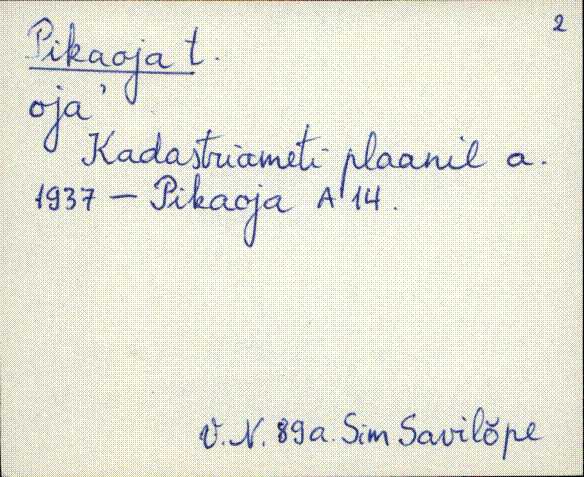 2
Pikaoja t.
oja'
Kadastriameti plaanil a.
1937 — Pikaoja A 14.
V. N. 89a. Sim Savilõpe